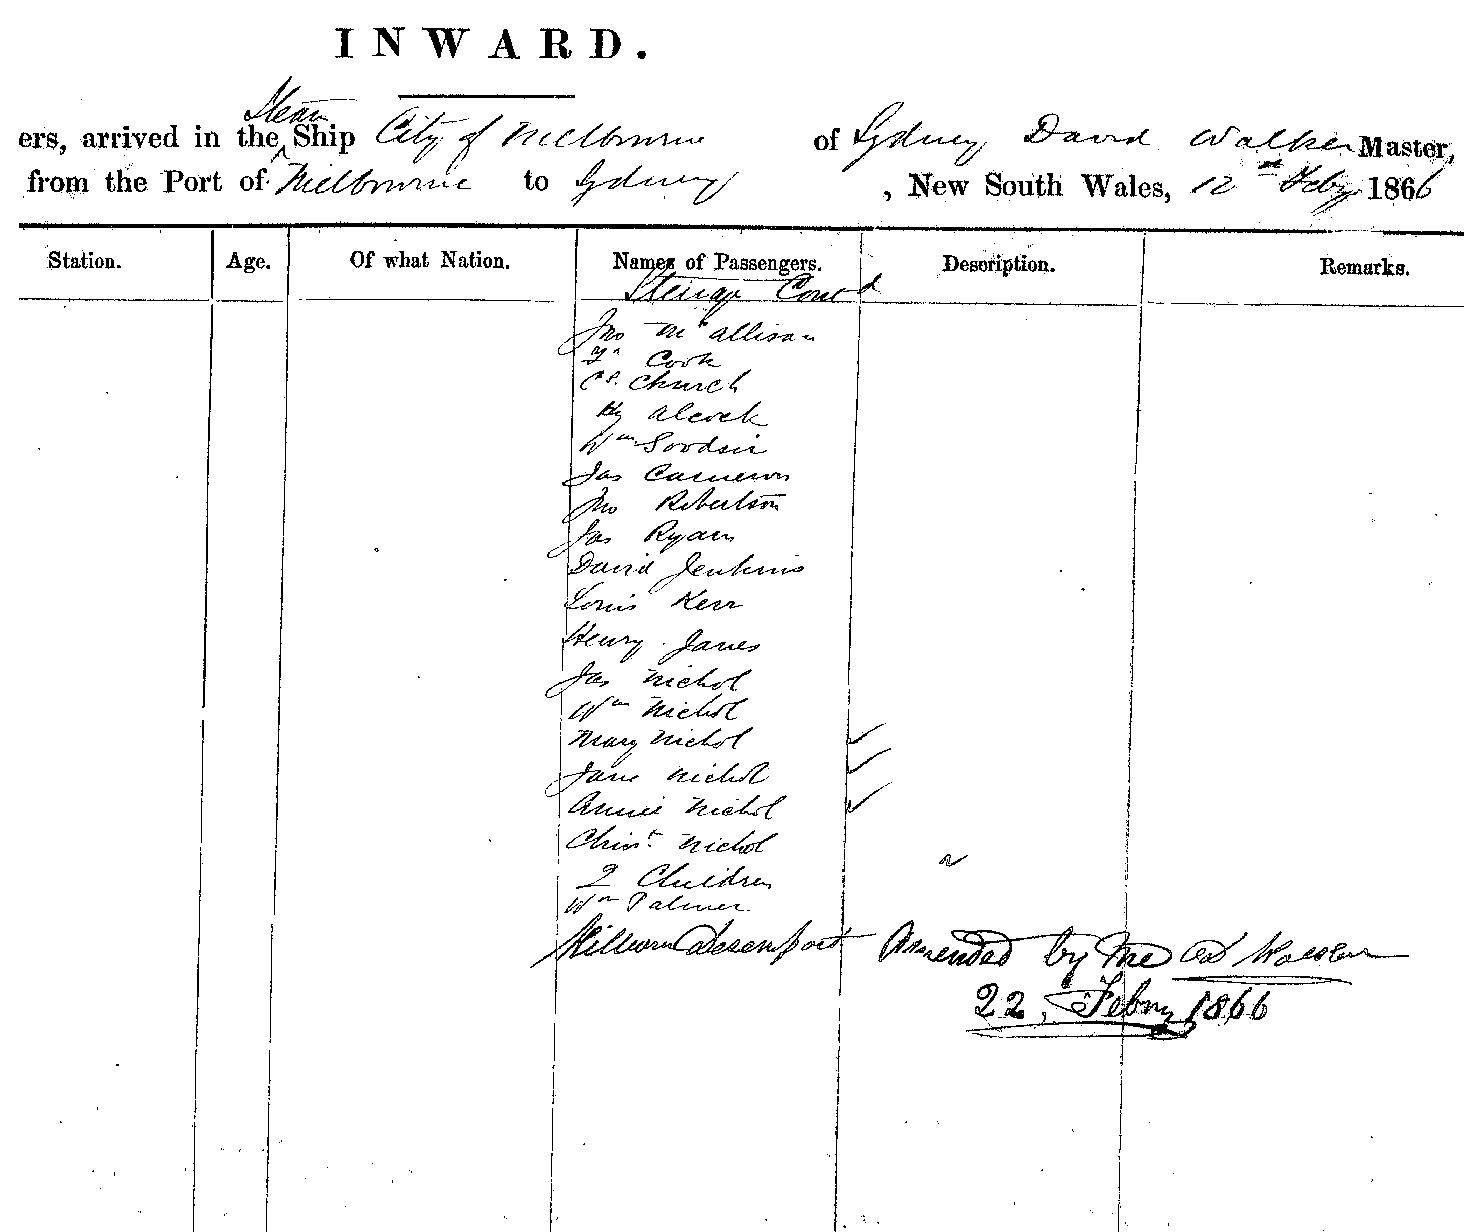 INWARD.
Steam
ers, arrived in the Ship City of Melbourne of Sydney David Walker Master,
from the Port of Melbourne to Sydney , New South Wales, 12th Feby 1866
Station. Age. Of what Nation. Names of Passengers. Description. Remarks.
Steerage Contd
Jno McAllison
Cook
Cs. Church
Hy Alcock
Wm Goodsir
Jas Cameron
Jno Robertson
Jas Ryan
David Jenkins
Louis Kerr
Henry Janes
Jas Nichol
Wm Nichol
Mary Nichol
Jane Nichol
Annie Nichol
Chrisr. Nichol
2 Children
Wm Palmer
William Amended by Me
22, Febry 1866